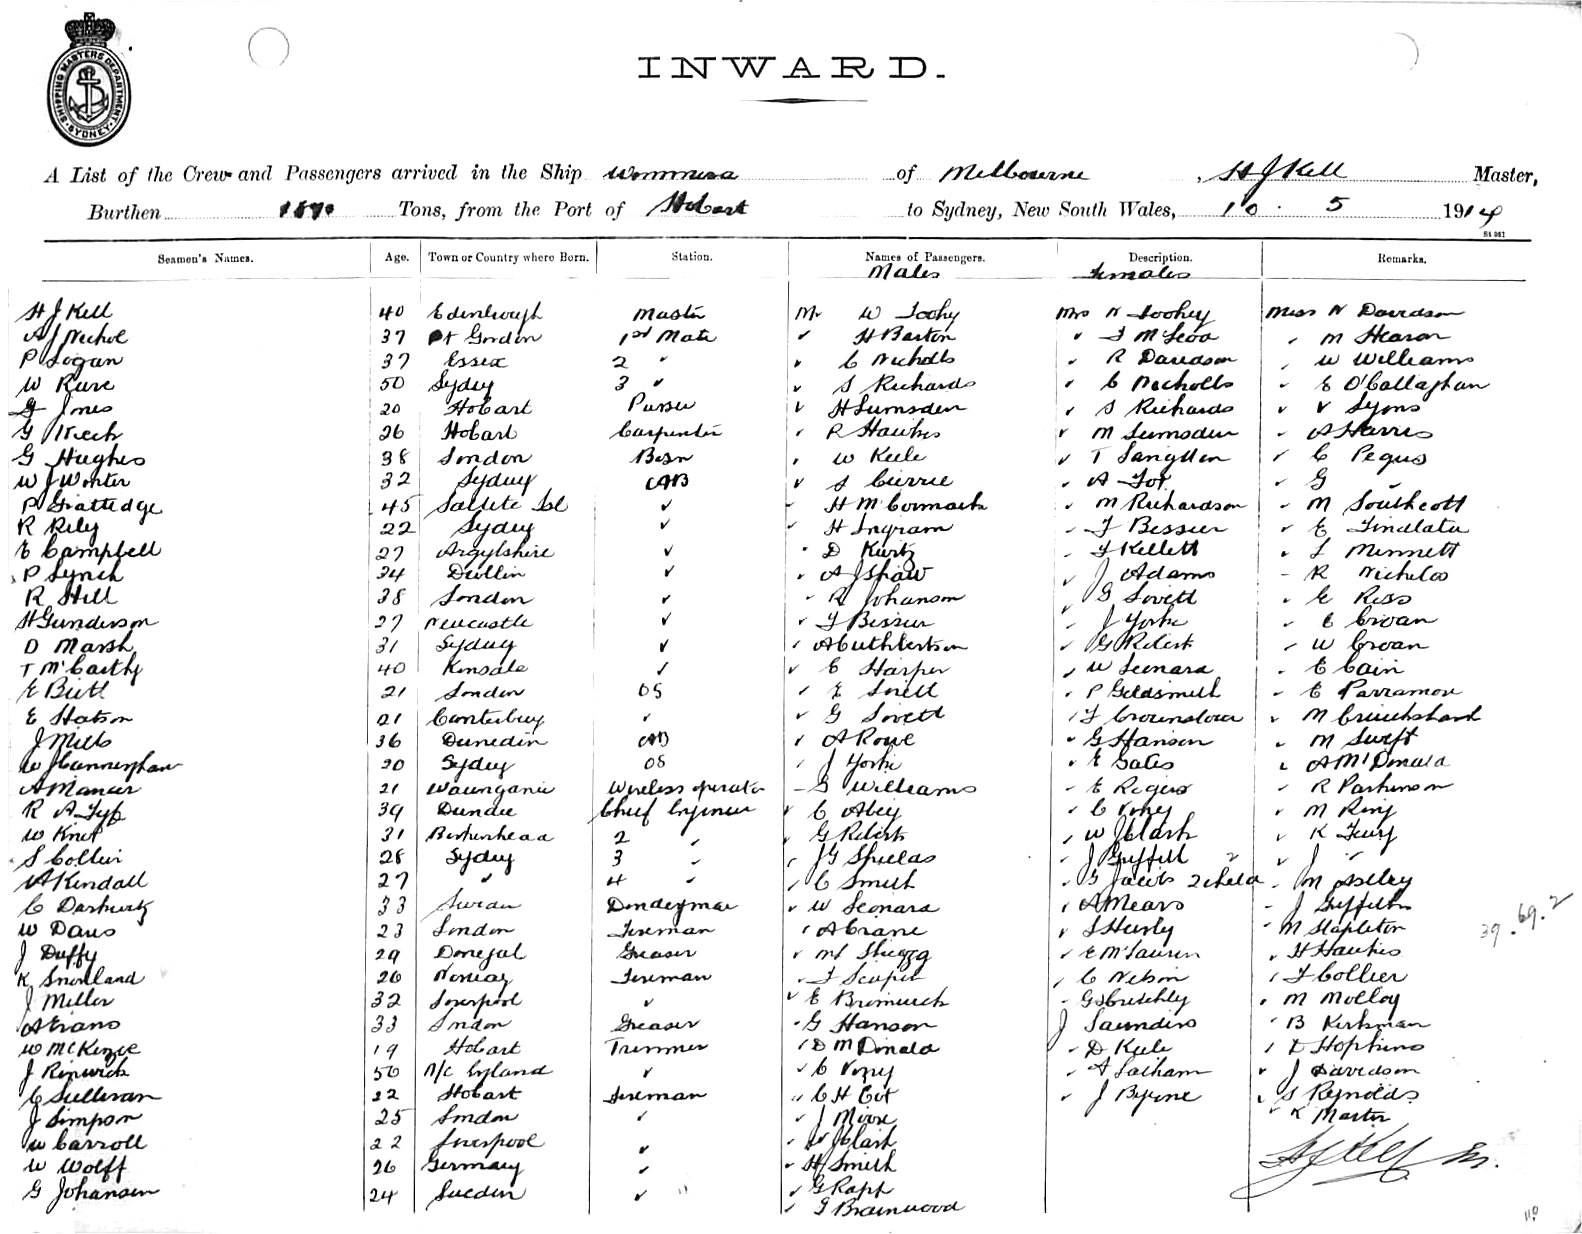 SHIPPING MASTERS DEPARTMENT · SYDNEY ·
INWARD.
A List of the Crew and Passengers arrived in the Ship Wommera of Melbourne , H J Kell Master,
Burthen Tons, from the Port of Hobart to Sydney, New South Wales, 10 . 5 1914
Seamen's Names. Age. Town or Country where Born. Station. Names of Passengers. Description. Remarks.
Males Females
H J Kell 40 Edinburgh Master Mr W Toohy Mrs N Toohey Miss N Davidson
A J Nichol 37 Pt Gordon 1st Mate H Barton F McLeod M Hearon
P Logan 37 Essex 2 " C Nicholls R Davidson W Williams
W Rure 50 Sydney 3 " S Richards C Nicholls E O'Callaghan
Jones 20 Hobart Purser H Lumsden S Richards V Lyons
G Kech 26 Hobart Carpenter R Hawkes M Lumsden A Harris
G Hughes 38 London Bosn W Keele T Langtten C Pegus
W J Winter 32 Sydney AB S Currie A Fox G "
P Grattidge 45 Saltete Isl " H McCormack M Richardson M Southcott
R Rily 22 Sydney " H Ingram F Bessier E Findlater
E Campbell 27 Argylshire " D Kurtz F Kellett L Minnett
P Lynch 34 Dublin " A J Shaw J Adams R Nicholas
R Hill 38 London " R Johanson G Lovett E Ross
H Gunderson 27 Newcastle " F Bessier J Yorke E Crvan
D Marsh 31 Sydney " A Cuthbertson G Roberts W Crvan
T McCarthy 40 Kinsale " E Harper W Leonard E Cain
E Butt 21 London OS E Lovell P Goldsmith E Parramor
E Hatson 21 Canterbury " G Lovett F Crownslow M Cruickshank
J Mills 36 Dunedin AB A Rowe G Hanson M Swift
W J Cunningham 20 Sydney OS J Yorke E Gales A McDonald
A Mancer 21 Wauganui Wireless operator G Williams E Rogers R Parkinson
R A Fyfe 39 Dundee Chief Engineer C Abey C Voney M Ring
W Knet 31 Berkenhead 2 " G Roberts W J Clark K Fury
S Collier 28 Sydney 3 " J G Shields J Griffith J "
A Kendall 27 " 4 " C Smith G Jacobs 2 child M Astley
C Darkwitz 33 Swean Donkeyman W Leonard A Mears J Griffiths
W Davis 23 London Fireman A Crane L Hurly M Stapleton
39 . 69 . 2
J Duffy 29 Donegal Greaser M Shegg E McLauren H Hawkes
K Snortland 26 Norway Fireman F Scapen C Nelson F Collier
J Miller 32 Liverpool " E Bromwich G S Critchly M Molloy
A Evans 33 London Greaser G Hanson J Saunders B Kirkman
W McKenzie 19 Hobart Trimmer D McDonald D Keele D Hopkins
J Renwick 56 N/C England " C Voney A Latham J Davidson
C Sullivan 22 Hobart Fireman C H Cot J Byrne S Reynolds
J Simpson 25 London " J Moore K Martin
W Carroll 22 Liverpool " W J Clark
W Wolff 26 Germany " H Smith H J Kell
G Johansen 24 Sweden " G Rapp
G Brainwood
110